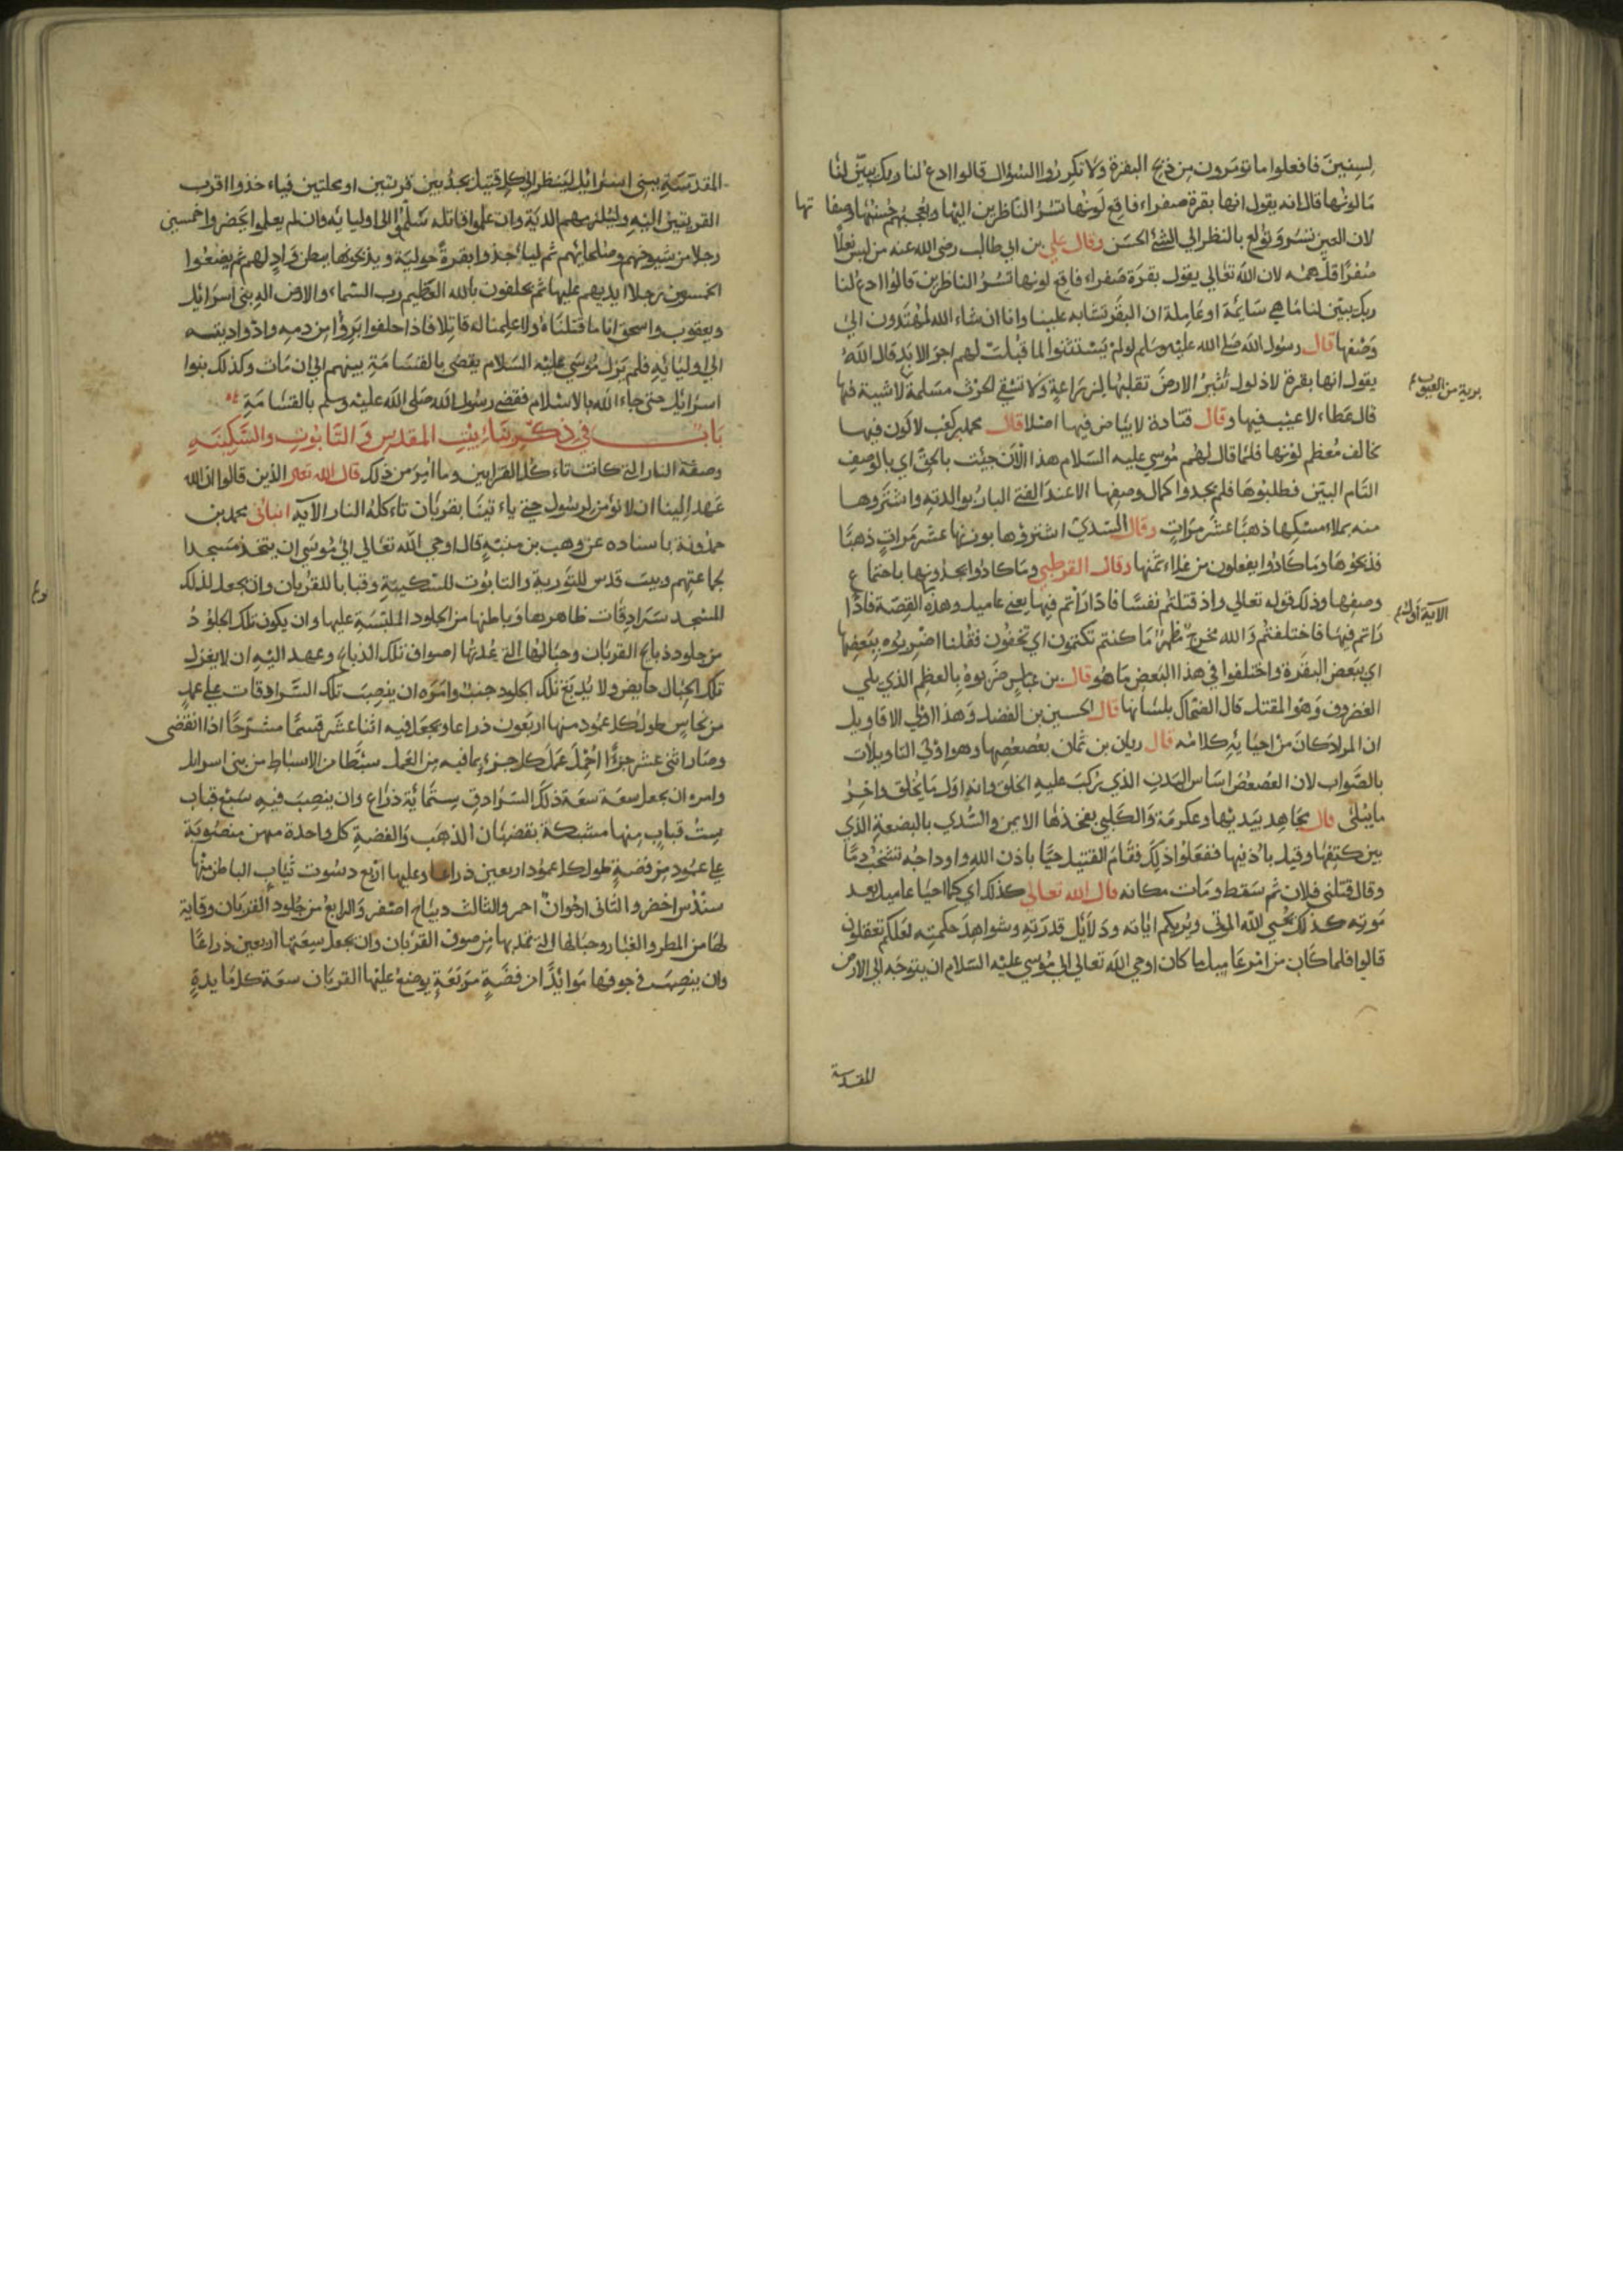 لسنين فافعلوا ما تؤمرون من ذبح البقرة ولا تكرروا السؤال قالوا ادع لنا ربك يبين لنا
ما لونها قال انه يقول انها بقرة صفراء فاقع لونها تسر الناظرين اليها ويعجبهم حسنها وصفا
تها
لان العين تسر وتولع بالنظر الي الشئ الحسن وقال علي بن ابي طالب رضى الله عنه من لبس نعلا
صفرا قل همه لان الله تعالي يقول بقرة صفراء فاقع لونها تسر الناظرين قالوا ادع لنا
ربك يبين لنا ما هي سايمة او عاملة ان البقر تشابه علينا وانا ان شاء الله لمهتدون الي
وصفها قال رسول الله صلى الله عليه وسلم لو لم يستثنوا لما قبلت لهم اخر الابد قال الله
يقول انها بقرة لا ذلول تثير الارض تقلبها للزراعة ولا تسقي الحرث مسلمة لا شية فيها
برية من العيوب
قال عطاء لا عيب فيها وقال قتادة لا بياض فيها اصلا قال محمد بن كعب لا لون فيها
يخالف معظم لونها فلما قال لهم موسي عليه السلام هذا الان جيئت بالحق اي بالوصف
التام البين فطلبوها فلم يجدوا كمال وصفها الا عند الفتى البار بوالدته واشتروها
منه بملاء مسكها ذهبا عشر مرات وقال السدي اشتروها بوزنها عشر مرات ذهبا
فذبحوها وما كادوا يفعلون من غلاء ثمنها وقال القرطبي وما كادوا يجدونها باجتماع
وصفها وذلك قوله تعالي واذ قتلتم نفسا فادارأتم فيها يعنى عاميل وهذه القصة فادا
الاية اول
راتم فيها فاختلفتم والله مخرج مظهر ما كنتم تكتمون اي تخفون فقلنا اضربوه ببعضها
اي ببعض البقرة واختلفوا في هذا البعض ما هو قال بن عباس ضربوه بالعظم الذي يلي
الغضروف وهو المقتل قال الضحاك بلسانها قال الحسين بن الفضل وهذا اولي الاقاويل
ان المراد كان من احيايه كلامه قال ريان بن ثمان بعصعصها وهو اولى التاويلات
بالصواب لان العصعص اساس البدن الذي يركب عليه الخلق وانه اول ما يخلق واخر
ما يبلى قال مجاهد بيد نبها وعكرمة والكلبي بفخذها الايمن والسدي بالبضعة التي
بين كتفيها وقيل باذنيها ففعلوا ذلك فقام القتيل حيا باذن الله واوداجه تشخب دما
وقال قتلنى فلان ثم سقط ومات مكانه قال الله تعالي كذلك اي كما احيا عاميل بعد
موته كذلك يحيي الله الموتى ويريكم اياته ودلائل قدرته وشواهد حكمته لعلكم تعقلون
قالوا فلما كان من امر عاميل ما كان اوحي الله تعالي الي موسي عليه السلام ان يتوجه الي الارض
المقدسة
المقدسة ببنى اسرائيل لينظر الي كل قتيل يجد بين قريتين او محلتين فياء خذوا اقرب
القريتين اليه وليلزمهم الدية وان علموا قاتله سلموا الى اوليائه وان لم يعلموا يحضروا خمسين
رجلا من شيوخهم وصلحائهم ثم لياخذوا بقرة حولية ويذبحونها ببطن واد لهم ثم يضعوا
الخمسون رجلا ايديهم عليها ثم يحلفون بالله العظيم رب السماء والارض اله بنى اسرائيل
ويعقوب واسحق انا ما قتلناه ولا علمنا له قاتلا فاذا حلفوا بروا من دمه وادوا ديته
الي اوليائه فلم يزل موسي عليه السلام يقضى بالقسامة بينهم الي ان مات وكذلك بنوا
اسرائيل حتى جاء الله بالاسلام فقضى رسول الله صلى الله عليه وسلم بالقسامة
باب في ذكر بناء بيت المقدس والتابوت والسكينة
وصفة النار التى كانت تاء كل القرابين وما امر من ذلك قال الله تعالى الذين قالوا ان الله
عهد الينا ان لا نؤمن لرسول حتى ياء تينا بقربان تاء كله النار الآيه انبانى محمد بن
حمدونة باسناده عن وهب بن منبه قال اوحي الله تعالي الي موسى ان يتخذ مسجدا
لجماعتهم وبيت قدس للتورية والتابوت للسكينة وقبابا للقربان وان يجعل لذلك
المسجد سرادقات ظاهرها وباطنها من الجلود الملبسة عليها وان يكون تلك الجلود
من جلود ذبايح القربان وحبالها التى تمد بها اصواف تلك الذبايح وعهد اليه ان لا يغزل
تلك الحبال حايض ولا يدبغ تلك الجلود جنب وامره ان ينصب تلك السرادقات علي عمد
من نحاس طول كل عمود منها اربعون ذراعا ويجعل فيه اثنا عشر قسما مشرحا اذا انقضى
وصار اثنى عشر جزؤا احمل عمل كل جزء بما فيه من العمل سبطا من الاسباط من بنى اسرائيل
وامره ان يجعل سعة سعة ذلك السرادق ستمائة ذراع وان ينصب فيه سبع قباب
ست قباب منها مشبكة بقضبان الذهب والفضة كل واحدة منهن منصوبة
علي عمود من فضة طول كل عمود اربعين ذراعا وعليها اربع دسوت ثياب الباطن منها
سندس اخضر والثانى ارجوان احمر والثالث ديباج اصفر والرابع من جلود القربان وقاية
لها من المطر والغبار وحبالها التى تمد بها من صوف القربان وان يجعل سعتها اربعين ذراعا
وان ينصب في جوفها موائدا من فضة مربعة يوضع عليها القربان سعة كل مايدة